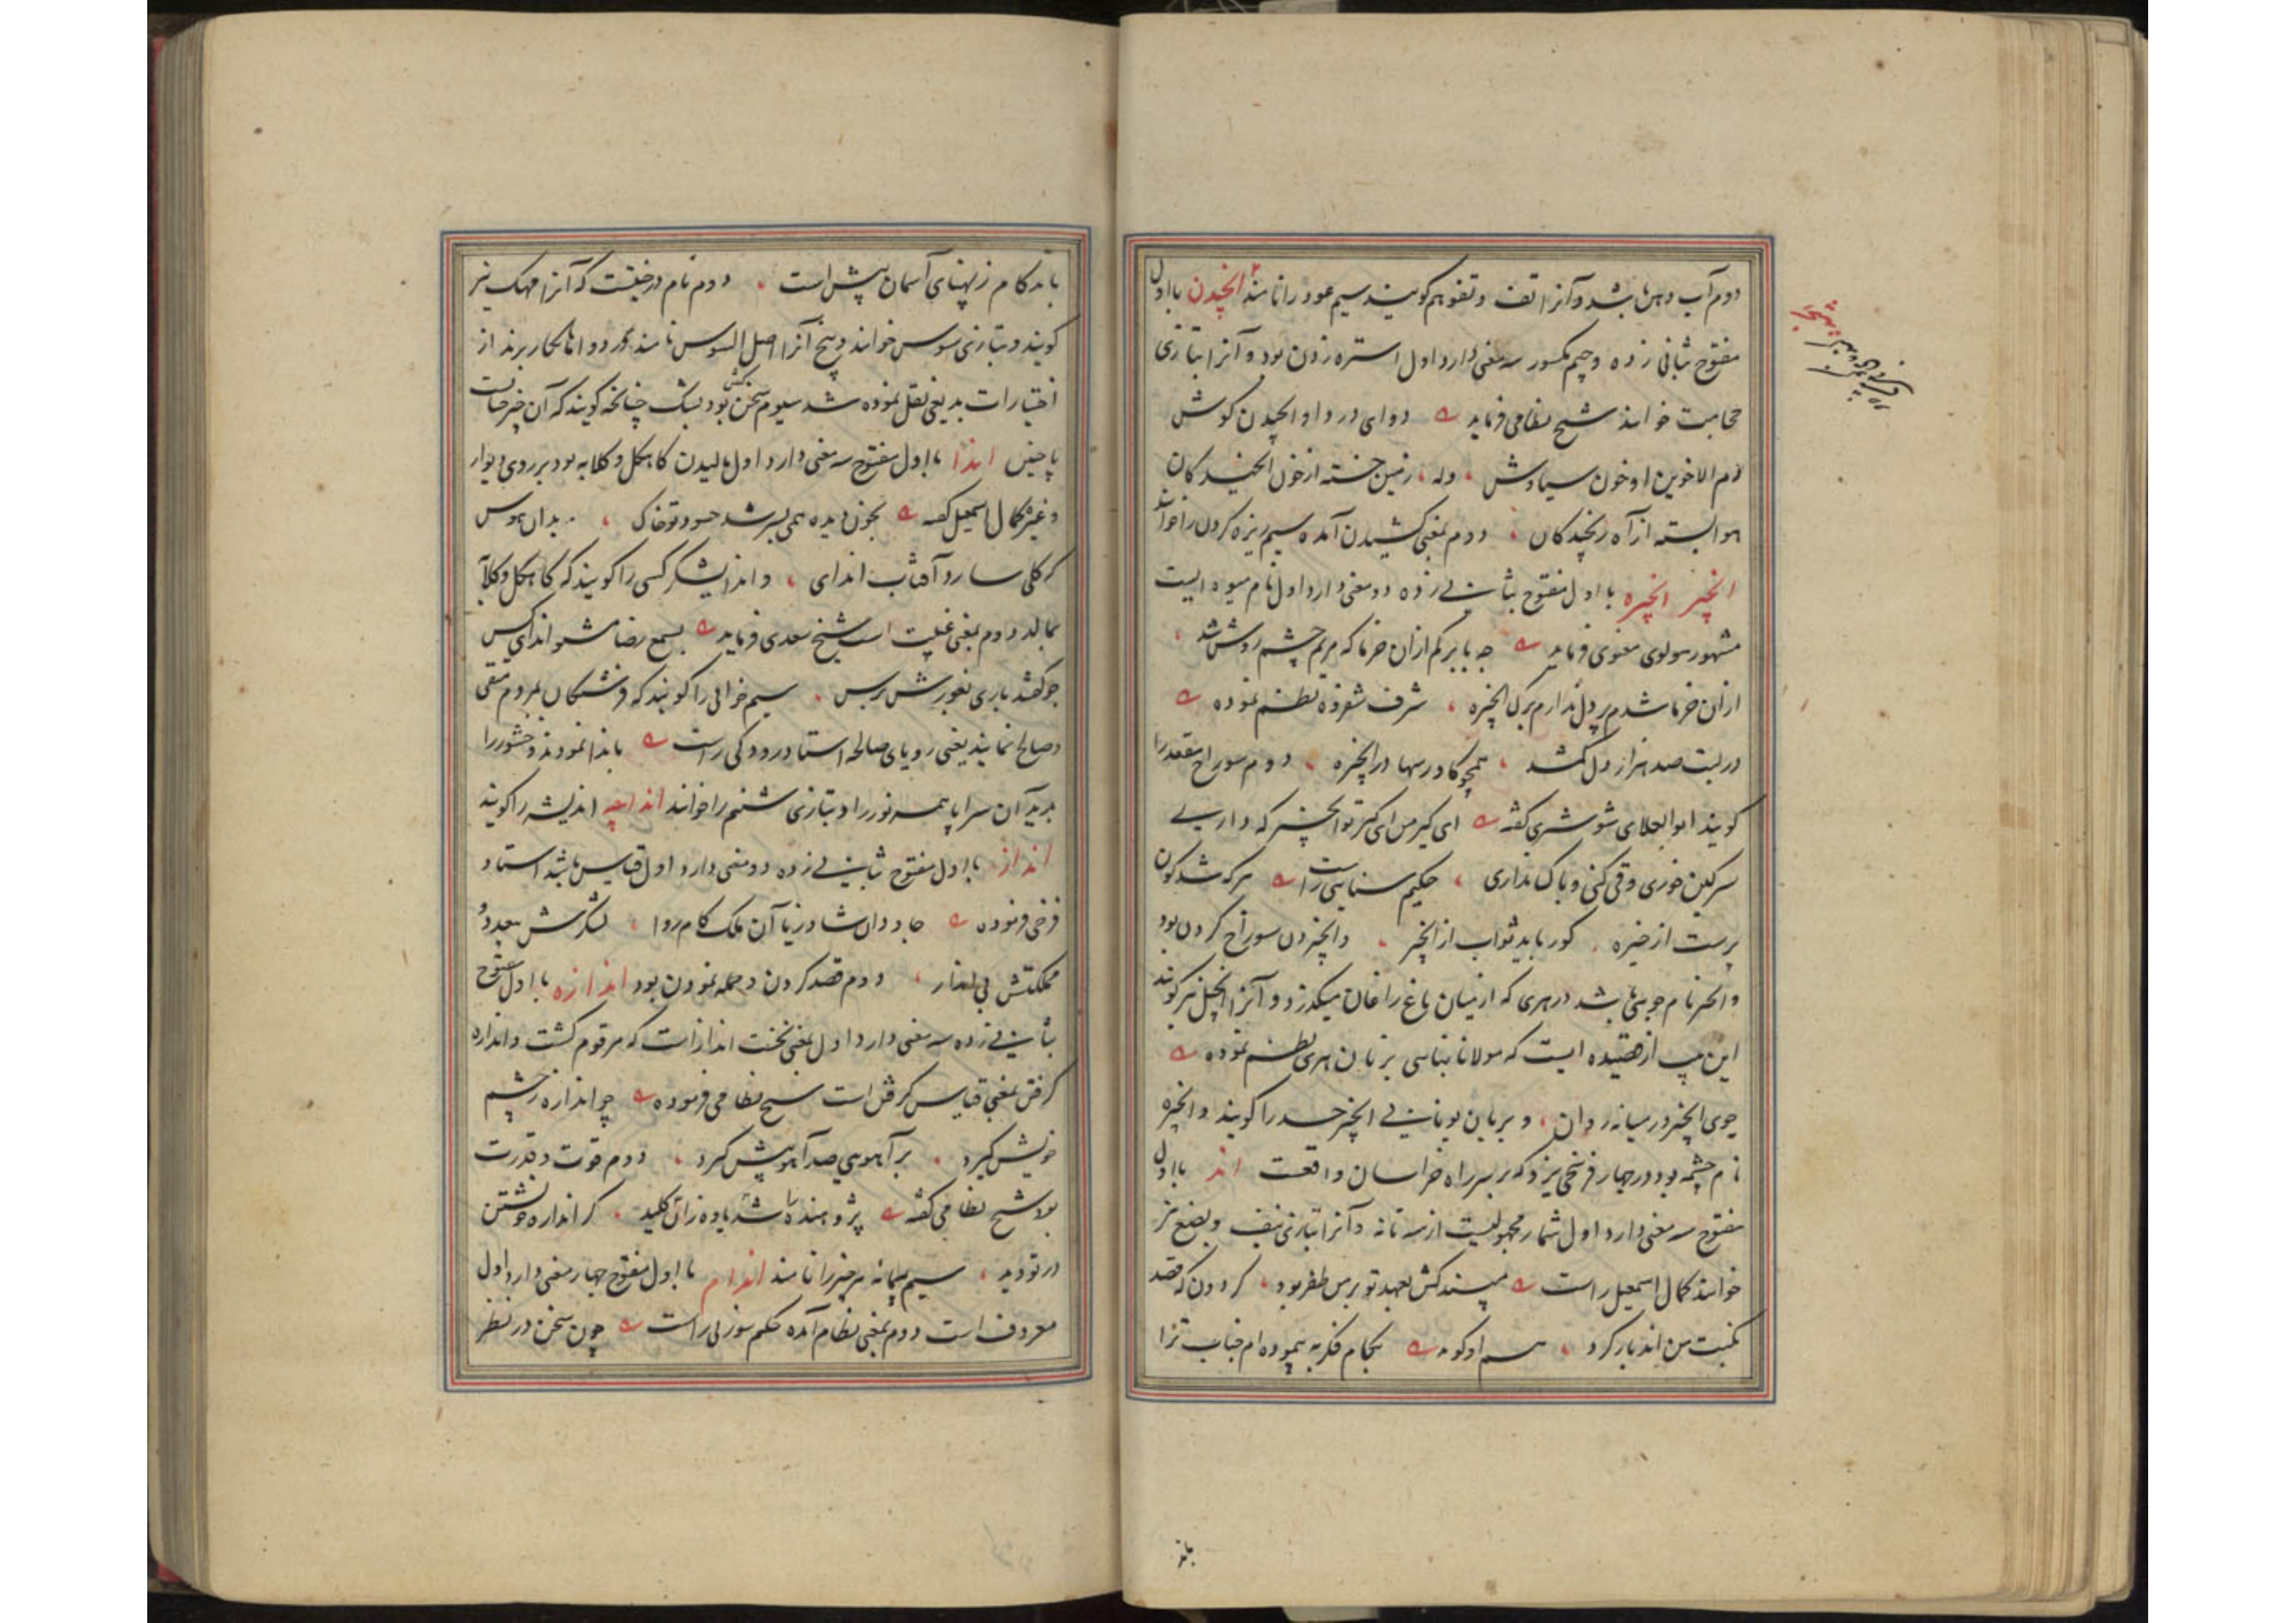 دوم آب دهن باشد و آنرا تف و تفو هم گویند سیم عود را نامند انجیدن با اول
مفتوح بثانی زده و جیم مکسور سه معنی دارد اول استره زدن بود و آنرا بتازی
حجامت خوانند شیخ نظامی فرماید دوای درد او انجیدن گوش
دم الاخوین او خون سیاوش وله زمین خسته از خون انجیدگان
هوا بسته از آه رنجیدگان دوم بمعنی کشیدن آمده سیم ریزه کردن را خوانند
انجیر انجیره با اول مفتوح بثانی زده دو معنی دارد اول نام میوه ایست
مشهور مولوی معنوی فرماید چه بابر کم ازان خرما که مریم چشم روشن شد
ازان خرما شدم پر دل ندارم برک انجیره شرف شفروه نظم نموده
در لبت صد هزار دل کم شد همچو کاورسها در انجیره دوم سوراخ مقعد را
گویند ابو العلای شوشتری گفته ای کیر من ای کیر تو انجیر که داری
سرکین خوری و قی کنی و باک نداری حکیم سنایی راست هر که شد کون
پرست از خیره کور یابد ثواب از انجیر و انجیردن سوراخ کردن بود
و انجیر نام جویی باشد در هری که از میان باغ زاغان میکذرد و آنرا انجیل نیز گویند
این بیت از قصیده ایست که مولانا بنایی بزبان هری نظم نموده
جوی انجیر در میانه روان و بزبان یونانی انجیر حسد را گویند و انجیره
نام چشمه بود در چهار فرسخی یزد که بر سر راه خراسان واقعست اند با اول
مفتوح سه معنی دارد اول شمار مجهولیست از سه تا نه و آنرا بتازی نیف و بضع نیز
خوانند کمال اسمعیل راست مپسند کش بعهد تو بر من ظفر بود کردون که قصد
نکبت من اند بار کرد هم او گوید بکام فکر به پیموده ام جناب ترا
باند
باند کام ز پهنای آسمان بیش است دوم نام درختیست که آنرا مهک نیز
گویند و بتازی سوس خوانند و بیخ آنرا اصل السوس نامند و در دواها بکار برند از
اختیارات بدیعی نقل نموده شد سیوم سخن بود بشک چنانچه گویند که آن چیز چنانست
یا چنین اندا با اول مفتوح سه معنی دارد اول مالیدن کاهکل و کلابه بود بر روی دیوار
و غیره کمال اسمعیل گفته بخون دیده همی بسرشد حسود تو خاک بدان هوس
که کلی سازد آفتاب اندای و اندایشکر کسی را گویند که کاهکل و کلابه
بمالد دوم بمعنی غیبت است شیخ سعدی فرماید بسمع رضا مشنو اندای کس
چو گفته شد باری بغورش برس سیم خوابی را گویند که فرشتگان بمردم متقی
و صالح نمایند یعنی رویای صالحه استاد رودکی راست باندا نمودند و خشور را
بدید آن سراپا همه نور را و بتازی شنم را خوانند انداچه اندیشه را گویند
انداز با اول مفتوح بثانی زده دو معنی دارد اول قیاس باشد استاد
فرخی فرموده جاودان شاد زیا آن ملک کام روا لشکرش بیعدد و
مملکتش بی انداز دوم قصد کردن و حمله نمودن بود اندازه با اول مفتوح
بثانی زده سه معنی دارد اول بمعنی نخست انداز است که مرقوم گشت و اندازه
گرفتن بمعنی قیاس گرفتن است شیخ نظامی فرموده چو اندازه ز چشم
خویش گیرد بر آهویی صد آهو بیش گیرد دوم قوت و قدرت
بود شیخ نظامی گفته پژوهنده را یاوه شد زان کلید کز اندازه خویشتن
در تو دید سیم پیمانه هر چیز را نامند اندام با اول مفتوح چهار معنی دارد اول
معروفست دوم بمعنی نظام آمده حکیم سوزنی راست چون سخن در نظر